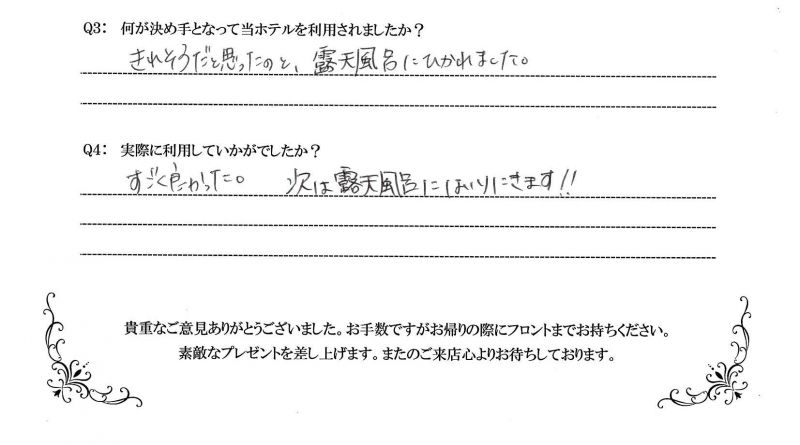 Q3: 何が決め手となって当ホテルを利用されましたか？
きれそうだと思ったのと、露天風呂にひかれました。
Q4: 実際に利用していかがでしたか？
すごく良かった。 次は露天風呂にはいりにきます!!
貴重なご意見ありがとうございました。お手数ですがお帰りの際にフロントまでお持ちください。
素敵なプレゼントを差し上げます。またのご来店心よりお待ちしております。